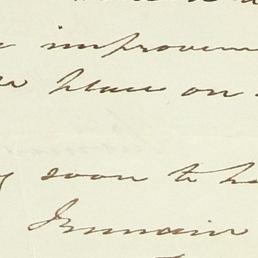 improvem
place on
soon to h
I remain